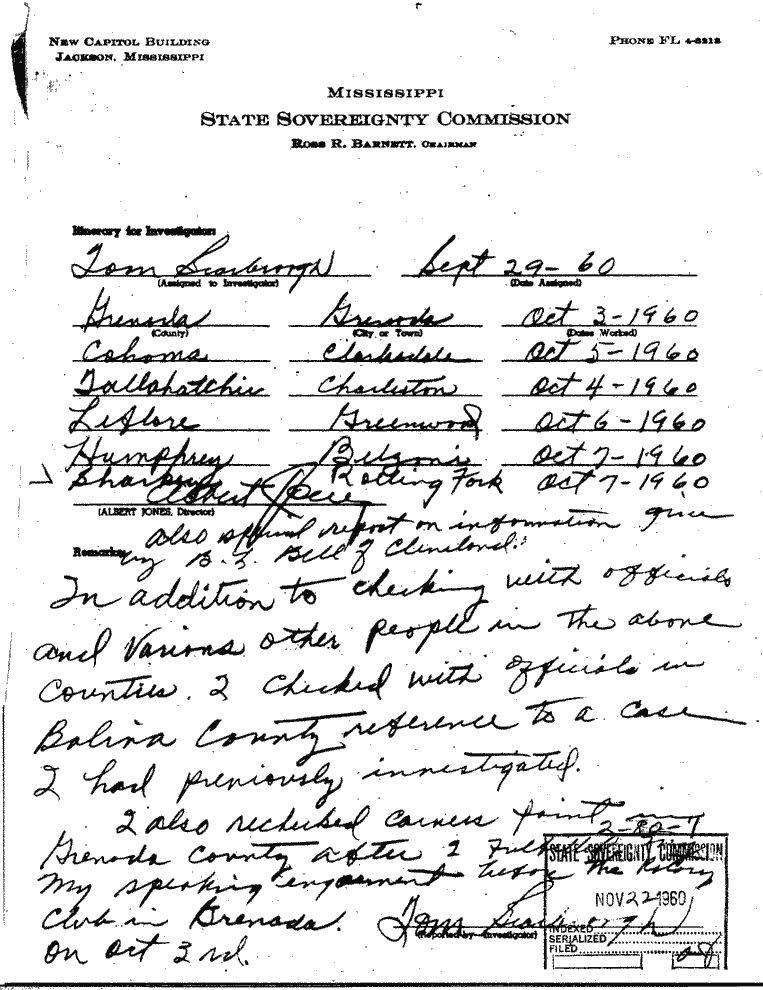 NEW CAPITOL BUILDING
JACKSON, MISSISSIPPI
PHONE FL 4-3218
MISSISSIPPI
STATE SOVEREIGNTY COMMISSION
ROSS R. BARNETT, CHAIRMAN
Itinerary for Investigator:
Tom Scarbrough Sept 29-60
(Assigned to Investigator) (Date Assigned)
Grenada Grenada Oct 3-1960
(County) (City or Town) (Dates Worked)
Cohoma Clarksdale Oct 5-1960
Tallahatchie Charleston Oct 4-1960
Leflore Greenwood Oct 6-1960
Humphrey Belzoni Oct 7-1960
Sharkey Rolling Fork Oct 7-1960
Albert Jones
(ALBERT JONES, Director)
also special report on information given
Remarks: by B. L. Bell of Cleveland.
In addition to checking with officials
and Various other people in the above
Counties. I checked with officials in
Bolivar County reference to a case
I had previously investigated.
I also rechecked corners joint in
2-80-7
Grenada County after I
My speaking engagement before the Rotary
Club in Grenada. Tom Scarbrough
(Reported by - Investigator)
on Oct 3rd.
STATE SOVEREIGNTY COMMISSION
NOV 22 1960
INDEXED
SERIALIZED
FILED